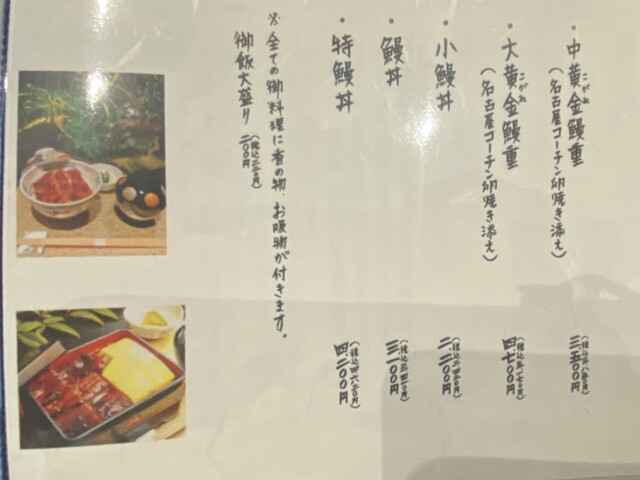 ・中黄金鰻重
こがね
(名古屋コーチン卵焼き添え)
三、五〇〇円
(税込三、八五〇円)
・大黄金鰻重
こがね
(名古屋コーチン卵焼き添え)
四、七〇〇円
(税込五、一七〇円)
・小鰻丼
二、二〇〇円
(税込二、四二〇円)
・鰻丼
三、一〇〇円
(税込三、四一〇円)
・特鰻丼
四、二〇〇円
(税込四、六二〇円)
※全ての御料理に香の物、お吸物が付きます。
御飯大盛り
二〇〇円
(税込二二〇円)